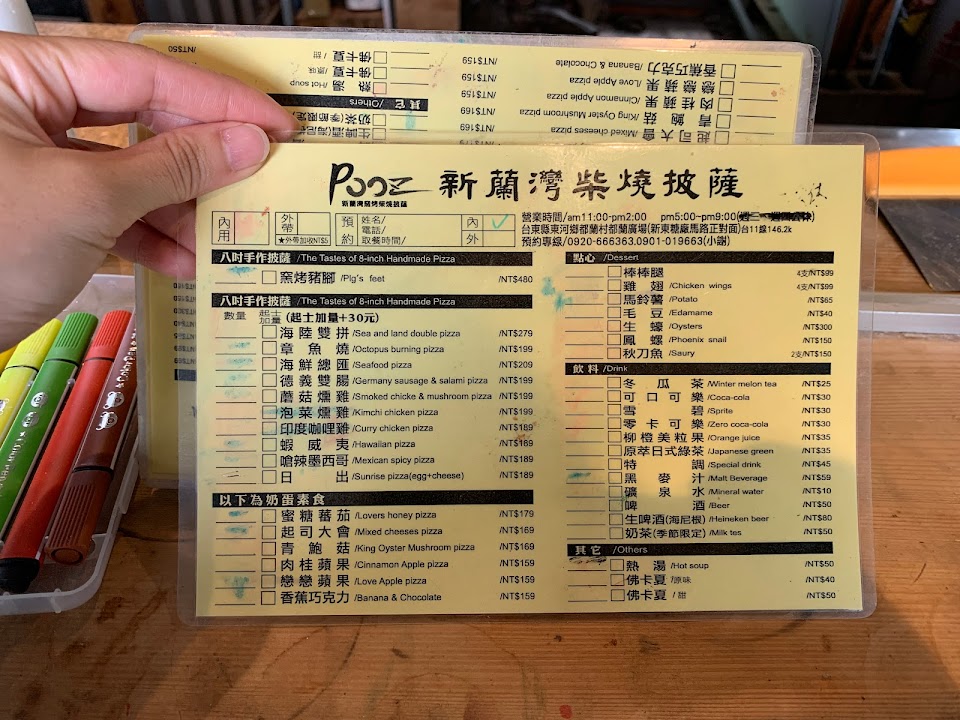 /NT$50
佛卡夏 / 甜
佛卡夏 / 原味
熱湯 /Hot soup
其它 /Others
/NT$159 /Banana & Chocolate 香蕉巧克力
/NT$159 /Love Apple pizza 戀戀蘋果
/NT$159 /Cinnamon Apple pizza 肉桂蘋果
/NT$169 /King Oyster Mushroom pizza 青鮑菇
/NT$169 /Mixed cheeses pizza 起司大會
Pooz 新蘭灣柴燒披薩
新蘭灣窯烤柴燒披薩
內用 外帶 ★外帶加收NT$5
預約 姓名/ 電話/ 取餐時間/ 內 ✓ 外
營業時間/am11:00-pm2:00 pm5:00-pm9:00
台東縣東河鄉都蘭村都蘭廣場(新東糖廠馬路正對面)台11線146.2k
預約專線/0920-666363.0901-019663(小謝)
八吋手作披薩 /The Tastes of 8-inch Handmade Pizza
窯烤豬腳 /Pig's feet /NT$480
八吋手作披薩 /The Tastes of 8-inch Handmade Pizza
數量 起士加量 (起士加量+30元)
海陸雙拼 /Sea and land double pizza /NT$279
章魚燒 /Octopus burning pizza /NT$199
海鮮總匯 /Seafood pizza /NT$209
德義雙腸 /Germany sausage & salami pizza /NT$199
蘑菇燻雞 /Smoked chicke & mushroom pizza /NT$199
泡菜燻雞 /Kimchi chicken pizza /NT$199
印度咖哩雞 /Curry chicken pizza /NT$189
蝦威夷 /Hawaiian pizza /NT$189
嗆辣墨西哥 /Mexican spicy pizza /NT$189
日出 /Sunrise pizza(egg+cheese) /NT$189
以下為奶蛋素食
蜜糖蕃茄 /Lovers honey pizza /NT$179
起司大會 /Mixed cheeses pizza /NT$169
青鮑菇 /King Oyster Mushroom pizza /NT$169
肉桂蘋果 /Cinnamon Apple pizza /NT$159
戀戀蘋果 /Love Apple pizza /NT$159
香蕉巧克力 /Banana & Chocolate /NT$159
點心 /Dessert
棒棒腿 4支/NT$99
雞翅 /Chicken wings 4支/NT$99
馬鈴薯 /Potato /NT$65
毛豆 /Edamame /NT$40
生蠔 /Oysters /NT$300
鳳螺 /Phoenix snail /NT$150
秋刀魚 /Saury 2支/NT$150
飲料 /Drink
冬瓜茶 /Winter melon tea /NT$25
可口可樂 /Coca-cola /NT$30
雪碧 /Sprite /NT$30
零卡可樂 /Zero coca-cola /NT$30
柳橙美粒果 /Orange juice /NT$35
原萃日式綠茶 /Japanese green /NT$35
特調 /Special drink /NT$45
黑麥汁 /Malt Beverage /NT$59
礦泉水 /Mineral water /NT$10
啤酒 /Beer /NT$50
生啤酒(海尼根) /Heineken beer /NT$80
奶茶(季節限定) /Milk tes /NT$50
其它 /Others
熱湯 /Hot soup /NT$50
佛卡夏 /原味 /NT$40
佛卡夏 / 甜 /NT$50